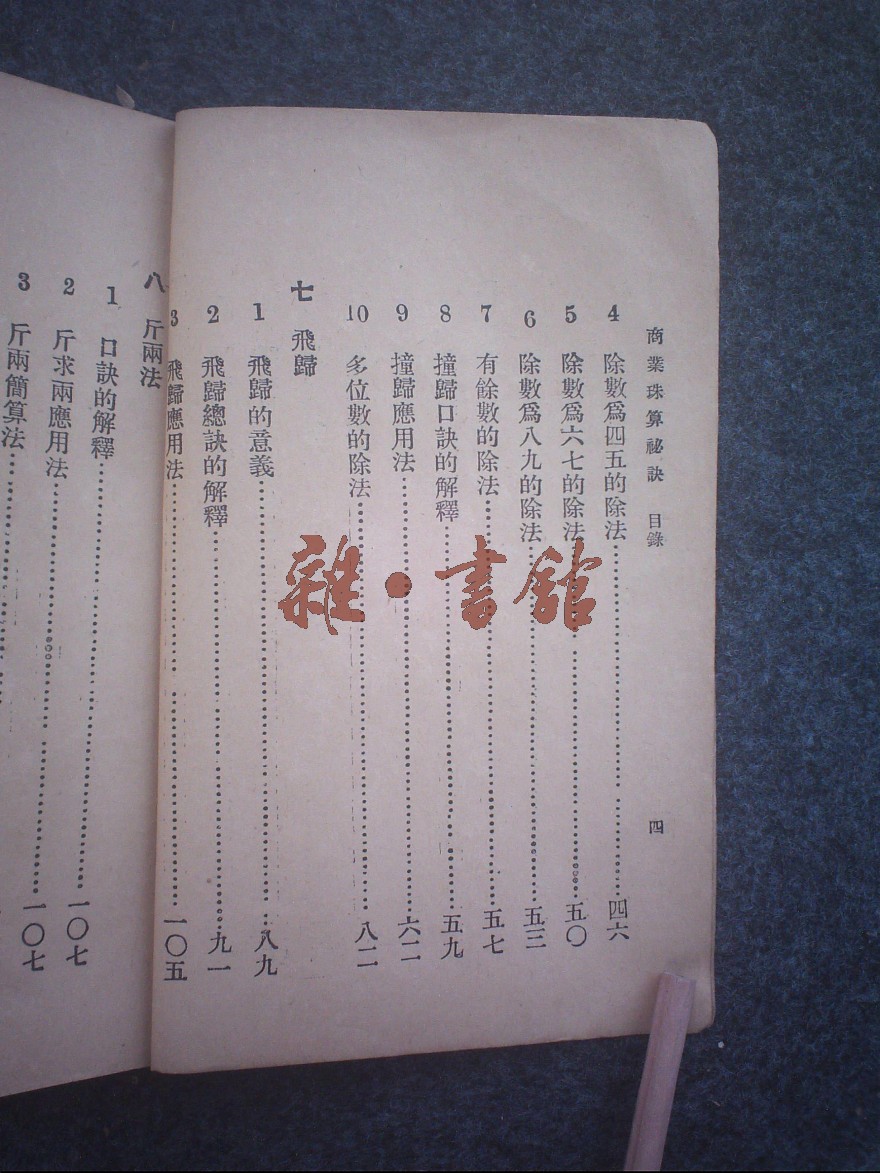 商業珠算祕訣 目錄 四
4 除數爲四五的除法 四六
5 除數爲六七的除法 五〇
6 除數爲八九的除法 五三
7 有餘數的除法 五七
8 撞歸口訣的解釋 五九
9 撞歸應用法 六二
10 多位數的除法 八二
七 飛歸
1 飛歸的意義 八九
2 飛歸總訣的解釋 九一
3 飛歸應用法 一〇五
八 斤兩法
1 口訣的解釋
2 斤求兩應用法 一〇七
3 斤兩簡算法 一〇七
雜·書館